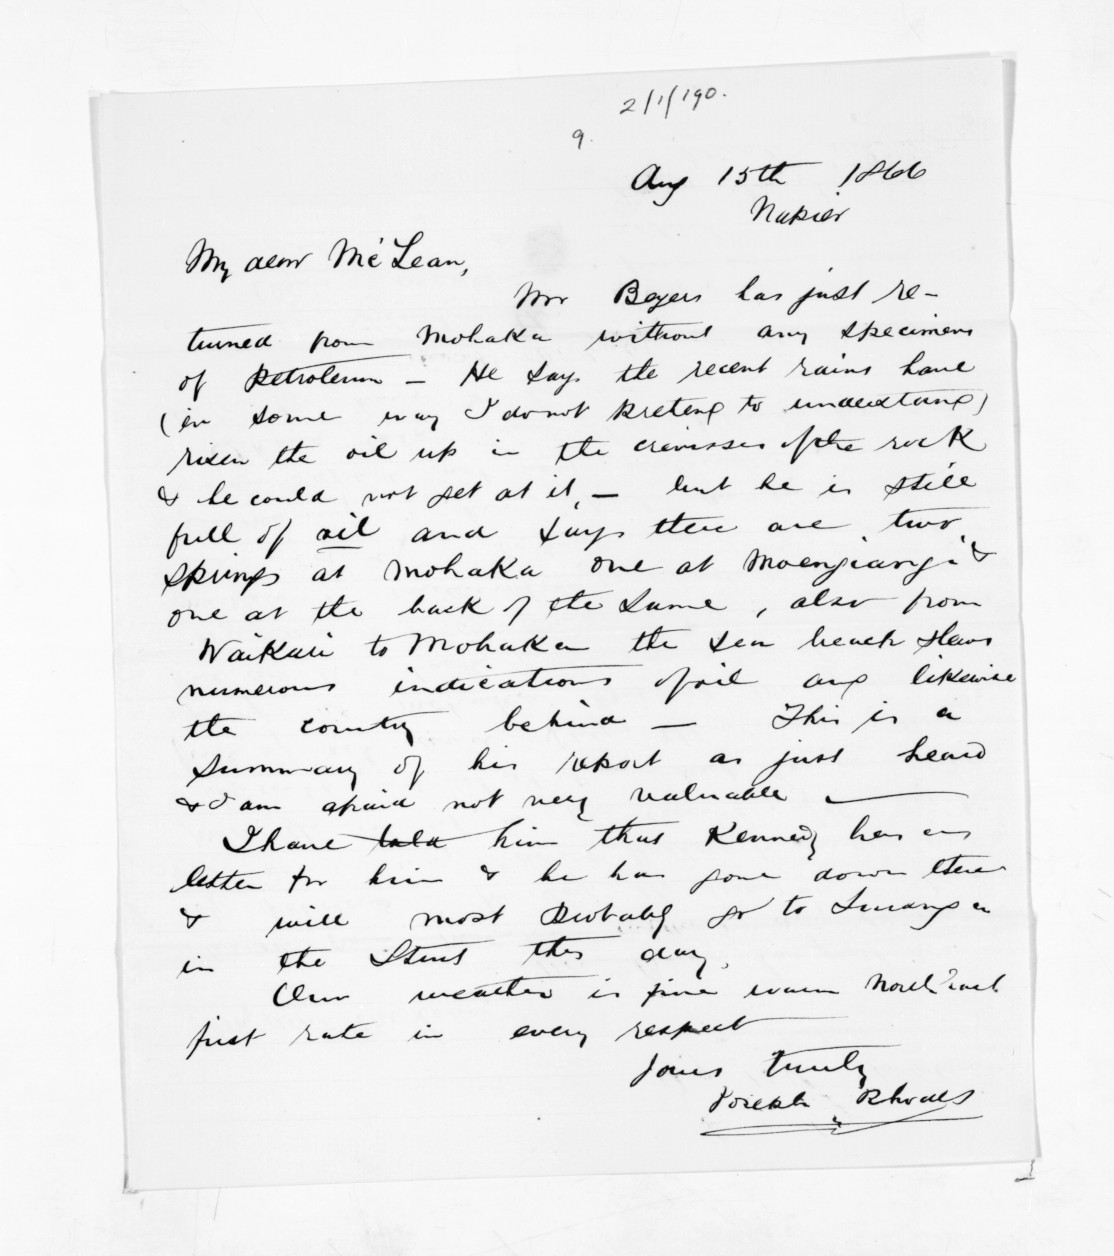 2/1/190.
9.
Aug 15th 1866
Napier
My dear McLean,
Mr Beyers has just re-
turned from Mohaka without any specimens
of Petroleum - He says the recent rains have
(in some way I do not pretend to understand)
risen the oil up in the crevisses of the rock
& he could not get at it, - but he is still
full of oil and says there are two
springs at Mohaka one at Moengiangi &
one at the back of the same, also from
Waikari to Mohaka the sea beach shews
numerous indications of oil and likewise
the country behind - This is a
summary of his report as just heard
& I am afraid not very valuable
I have told him that Kennedy has a
letter for him & he has gone down there
& will most probably go to Turanga
in the Sturt this day.
Our weather is fine warm North East
first rate in every respect
Yours truly
Joseph Rhodes